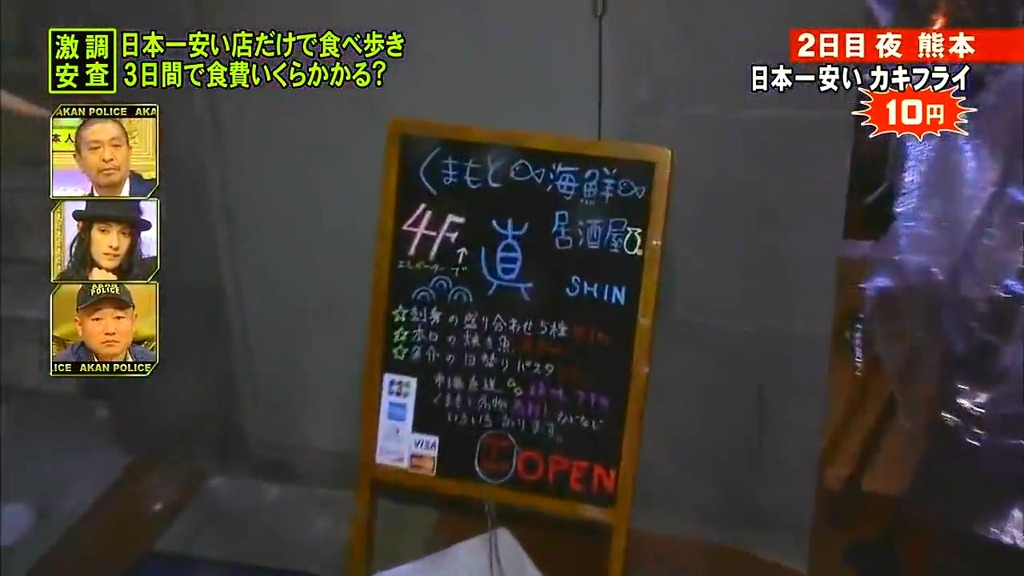 激調
安査
日本一安い店だけで食べ歩き
3日間で食費いくらかかる?
2日目 夜 熊本
日本一安い カキフライ
10円
AKAN POLICE AKA
本人
POLICE
ICE AKAN POLICE
くまもと 海鮮
4F 居酒屋
↑
エレベーターで
真
SHIN
☆刺身の盛り合わせ5種
☆本日の焼き魚
☆魚介の日替りパスタ
市場直送
いろいろあります。
JCB
VISA
OPEN